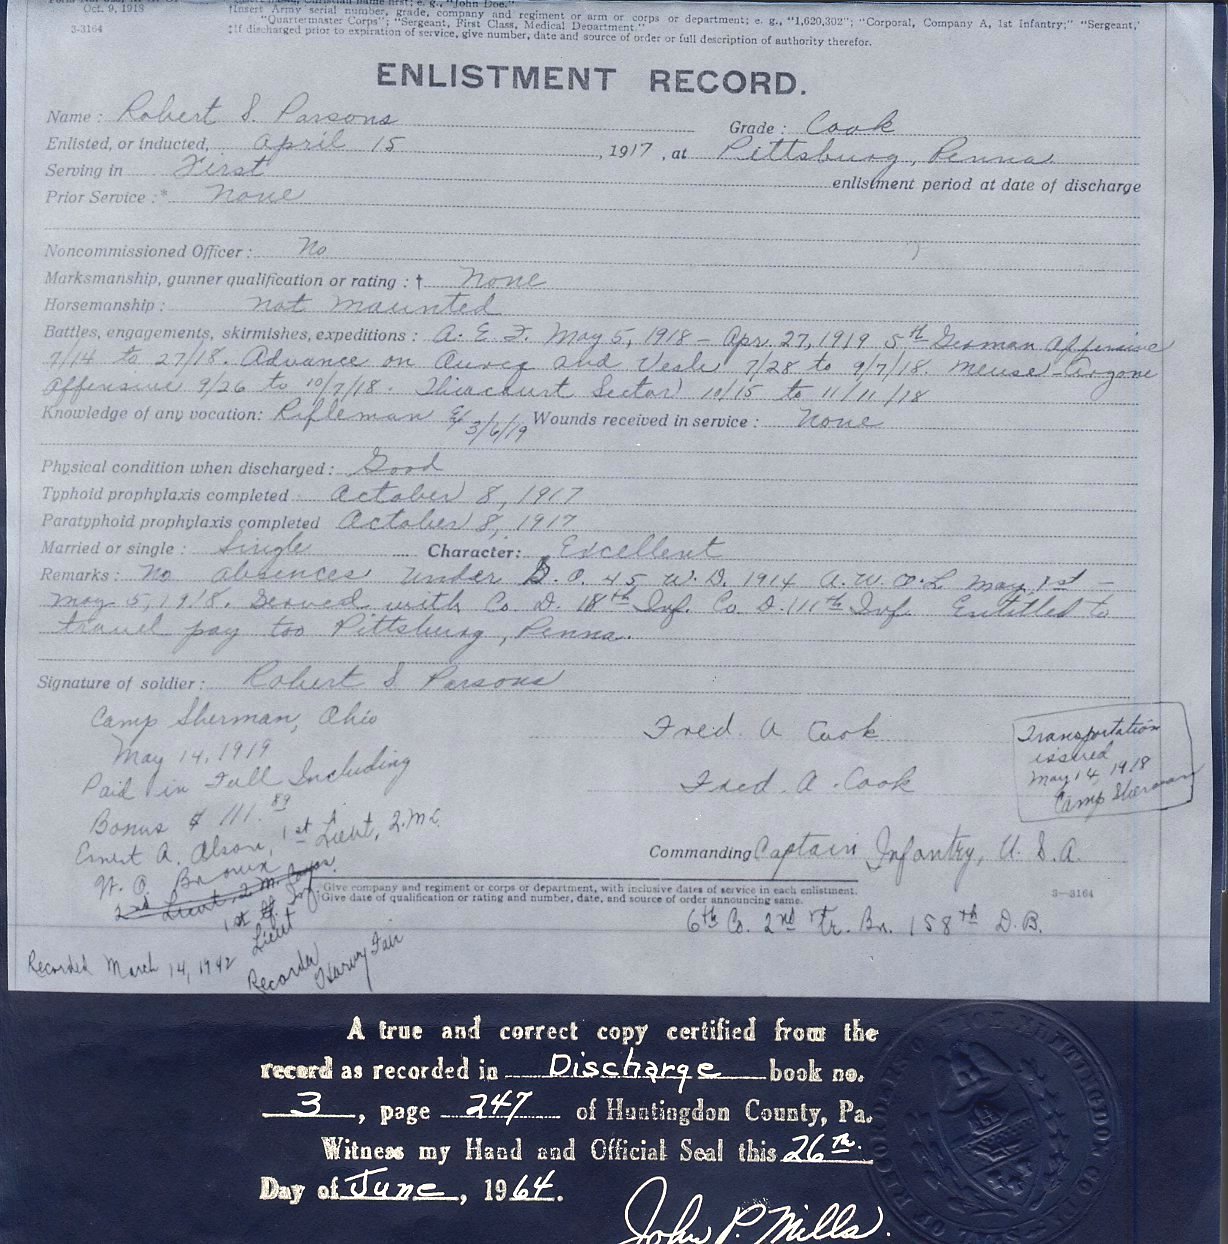 Oct. 9, 1918
†Insert Army serial number, grade, company and regiment or arm or corps or department; e. g., "1,620,302"; "Corporal, Company A, 1st Infantry;" "Sergeant,
"Quartermaster Corps"; "Sergeant, First Class, Medical Department."
3-3164
‡If discharged prior to expiration of service, give number, date and source of order or full description of authority therefor.
ENLISTMENT RECORD.
Name: Robert S. Parsons Grade: Cook
Enlisted, or inducted, April 15, 1917, at Pittsburg, Penna.
Serving in First enlistment period at date of discharge
Prior Service:* None
Noncommissioned Officer: No
Marksmanship, gunner qualification or rating: † None
Horsemanship: not mounted
Battles, engagements, skirmishes, expeditions: A. E. F. May 5, 1918 - Apr. 27, 1919 5th German Offensive
7/14 to 27/18. Advance on Ourcq and Vesle 7/28 to 9/7/18. Meuse-Argone
Offensive 9/26 to 10/7/18. Thiacourt Sector 10/15 to 11/11/18
Knowledge of any vocation: Rifleman 3/6/19 Wounds received in service: None
Physical condition when discharged: Good
Typhoid prophylaxis completed October 8, 1917
Paratyphoid prophylaxis completed October 8, 1917
Married or single: Single Character: Excellent
Remarks: No absences under G. O. 45 W. D. 1914 A. W. O. L May 1st -
May 5, 1918. Served with Co. D. 18th Inf. Co. D. 111th Inf. Entitled to
travel pay too Pittsburg, Penna.
Signature of soldier: Robert S Parsons
Camp Sherman, Ohio
May 14, 1919
Paid in Full Including
Bonus $ 111.89
Ernest A. Olson, 1st Lieut, Q.M.C.
W. O. Brown
2nd Lieut, Q. M. Corps.
1st Lt. Inf.
Lieut
Fred. A Cook
Fred. A. Cook
Transportation
issued
May 14, 1918
Camp Sherman
Commanding Captain Infantry, U. S. A.
*Give company and regiment or corps or department, with inclusive dates of service in each enlistment.
†Give date of qualification or rating and number, date, and source of order announcing same.
3-3164
6th Co. 2nd Tr. Bn. 158th D.B.
Recorded March 14, 1942
Recorder
Harvey Fair
A true and correct copy certified from the
record as recorded in Discharge book no.
3, page 247 of Huntingdon County, Pa.
Witness my Hand and Official Seal this 26th.
Day of June, 1964.
John P. Mills.